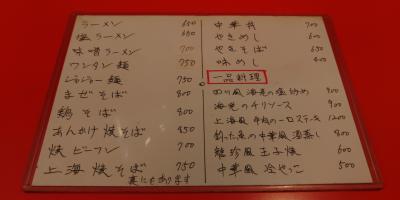 ラーメン 650
塩ラーメン 650
味噌ラーメン 700
ワンタン麺 750
ジャージャー麺 750
まぜそば 800
鶏そば 800
あんかけ焼そば 850
焼ビーフン 700
上海焼そば 750
中華丼 700
やきめし 600
やきそば 650
味めし 400
一品料理
四川風海老の塩炒め 900
海老のチリソース 900
上海風牛肉のロースステーキ 1200
中華風 800
玉子焼 600
中華風冷やっこ 500